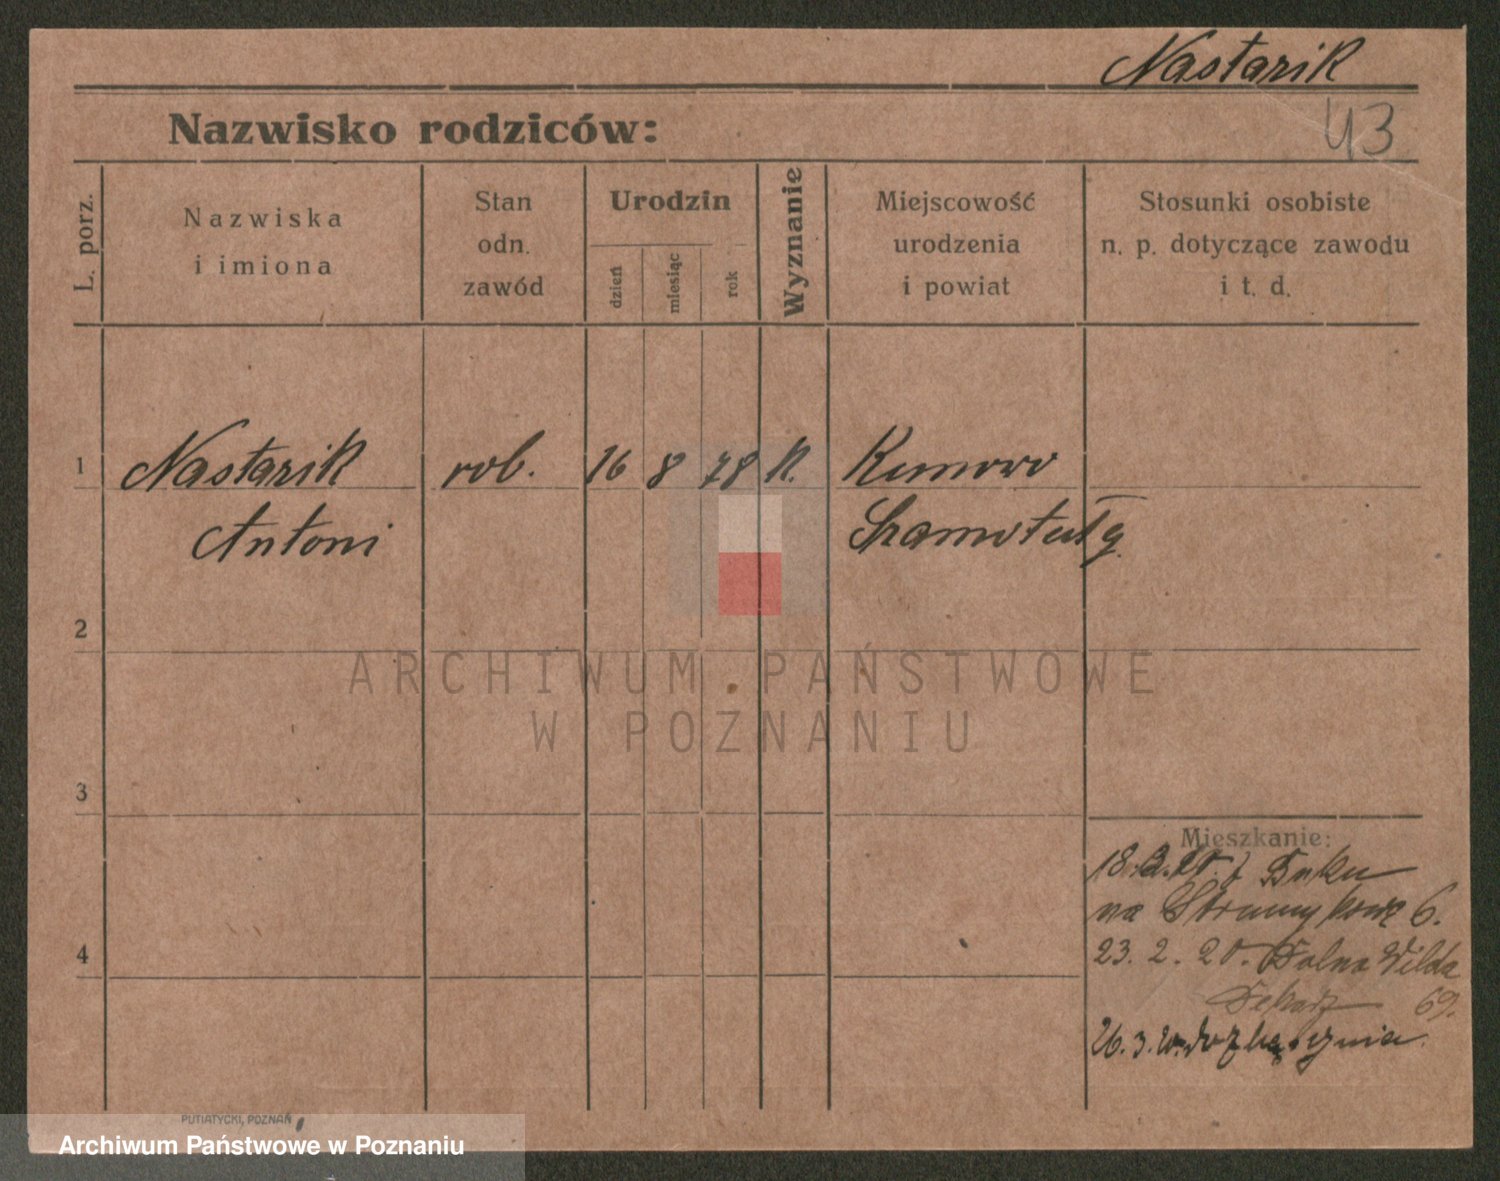 Nastarik
43
Nazwisko rodziców:
L. porz.
Nazwiska
i imiona
Stan
odn.
zawód
Urodzin
dzień
miesiąc
rok
Wyznanie
Miejscowość
urodzenia
i powiat
Stosunki osobiste
n. p. dotyczące zawodu
i t. d.
1 Nastarik rob. 16 8 78 K.
Antoni
2
3
4
ARCHIWUM PAŃSTWOWE
W POZNANIU
Mieszkanie:
18. 2. 20. z Buku
na 6.
23. 2. 20. Dolna Wilda
69.
26. 3. 20.
PUTIATYCKI, POZNAŃ
Archiwum Państwowe w Poznaniu